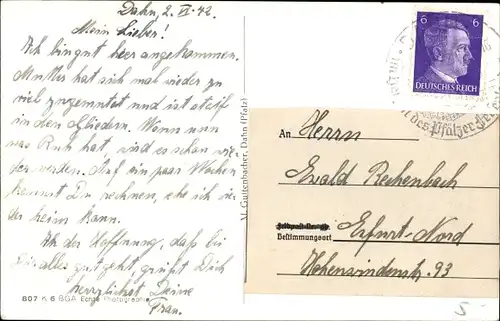 Dahn, 2. VI. 42.
Mein Lieber!
Ich bin gut hier angekommen.
Mutter hat sich mal wieder zu
viel zugemutet und ist steif
in den Gliedern. Wenn nun
was Ruh hat wird es schon wie-
der werden. Auf ein paar Wochen
kannst Du rechnen, ehe ich wie-
der heim kann.
In der Hoffnung, daß bei
Dir alles gut geht, grüßt Dich
herzlichst Deine
Frau.
807 K 6 BGA Echte Photographie
M. Guttenbacher, Dahn (Pfalz)
6 6
DEUTSCHES REICH
des Pfälzer
An Herrn
Ewald Rechenbach
Bestimmungsort Erfurt-Nord
Hohenwindenstr. 93
5.-